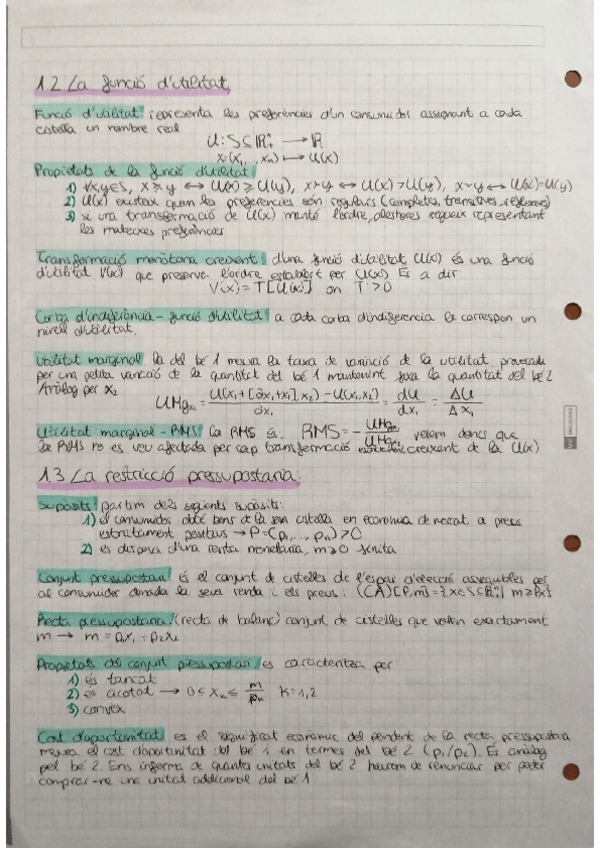 1.2 La funció d'utilitat
Funció d'utilitat: representa les preferències d'un consumidor assignant a cada
cistella un nombre real
U: S⊆ℝⁿ₊ → ℝ
x: (x₁, , xₙ) ↦ U(x)
Propietats de la funció d'utilitat:
1) ∀x,y∈S, x≽y ↔ U(x)≥U(y), x≻y ↔ U(x)>U(y), x∼y ↔ U(x)=U(y)
2) U(x) existeix quan les preferències són regulars (completes, transitives, reflexives)
3) si una transformació de U(x) manté l'ordre, aleshores segueix representant
les mateixes preferències
Transformació monòtona creixent: d'una funció d'utilitat U(x) és una funció
d'utilitat V(x) que preserva l'ordre establert per U(x) És a dir
V(x) = T[U(x)] on T'>0
Corba d'indiferència - funció d'utilitat: a cada corba d'indiferencia li correspon un
nivell d'utilitat.
Utilitat marginal: la del bé 1 mesura la taxa de variació de la utilitat, provocada
per una petita variació de la quantitat del bé 1 mantenint fixa la quantitat del bé 2
Anàleg per x₂
UMgₓ₁ = U(x₁+[∂x₁+x₁], x₂) - U(x₁,x₂) / ∂x₁ = dU / dx₁ = ΔU / Δx₁
Utilitat marginal - RMS: la RMS és: RMS = - UMgₓ₁ / UMgₓ₂ veiem doncs que
la RMS no es veu afectada per cap transformació creixent de la U(x)
1.3 La restricció pressupostària:
Supòsits: partim dels següents supòsits:
1) el consumidor obté bens de la seva cistella en economia de mercat a preus
estrictament positius → P=(p₁,..., pₙ)>0
2) es disposa d'una renta monetària, m≥0 finita
Conjunt pressupostari: és el conjunt de cistelles de l'espai d'elecció assequibles per
al consumidor donada la seva renta i els preus: (CA)[P,m]={x∈S⊆ℝⁿ₊| m≥Px}
Recta pressupostària: (recta de balanç) conjunt de cistelles que valen exactament
m → m = p₁x₁ + p₂x₂
Propietats del conjunt pressupostari: es caracteritza per
1) és tancat
2) és acotat → 0 ≤ xₖ ≤ m/pₖ K=1,2
3) convex
Cost d'oportunitat: es el significat econòmic del pendent de la recta pressupostària
mesura el cost d'oportunitat del bé 1 en termes del bé 2 (p₁/p₂). És anàleg
pel bé 2. Ens informa de quantes unitats del bé 2 haurem de renunciar per poder
comprar-ne una unitat addicional del bé 1